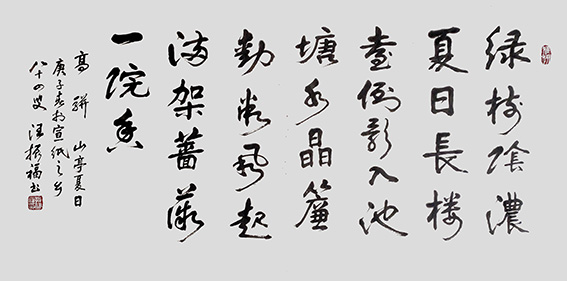 绿树陰濃
夏日長楼
臺倒影入池
塘水晶簾
動微風起
满架薔薇
一院香
高骈 山亭夏日
庚子春於宣纸之乡
八十四叟 汪振福书